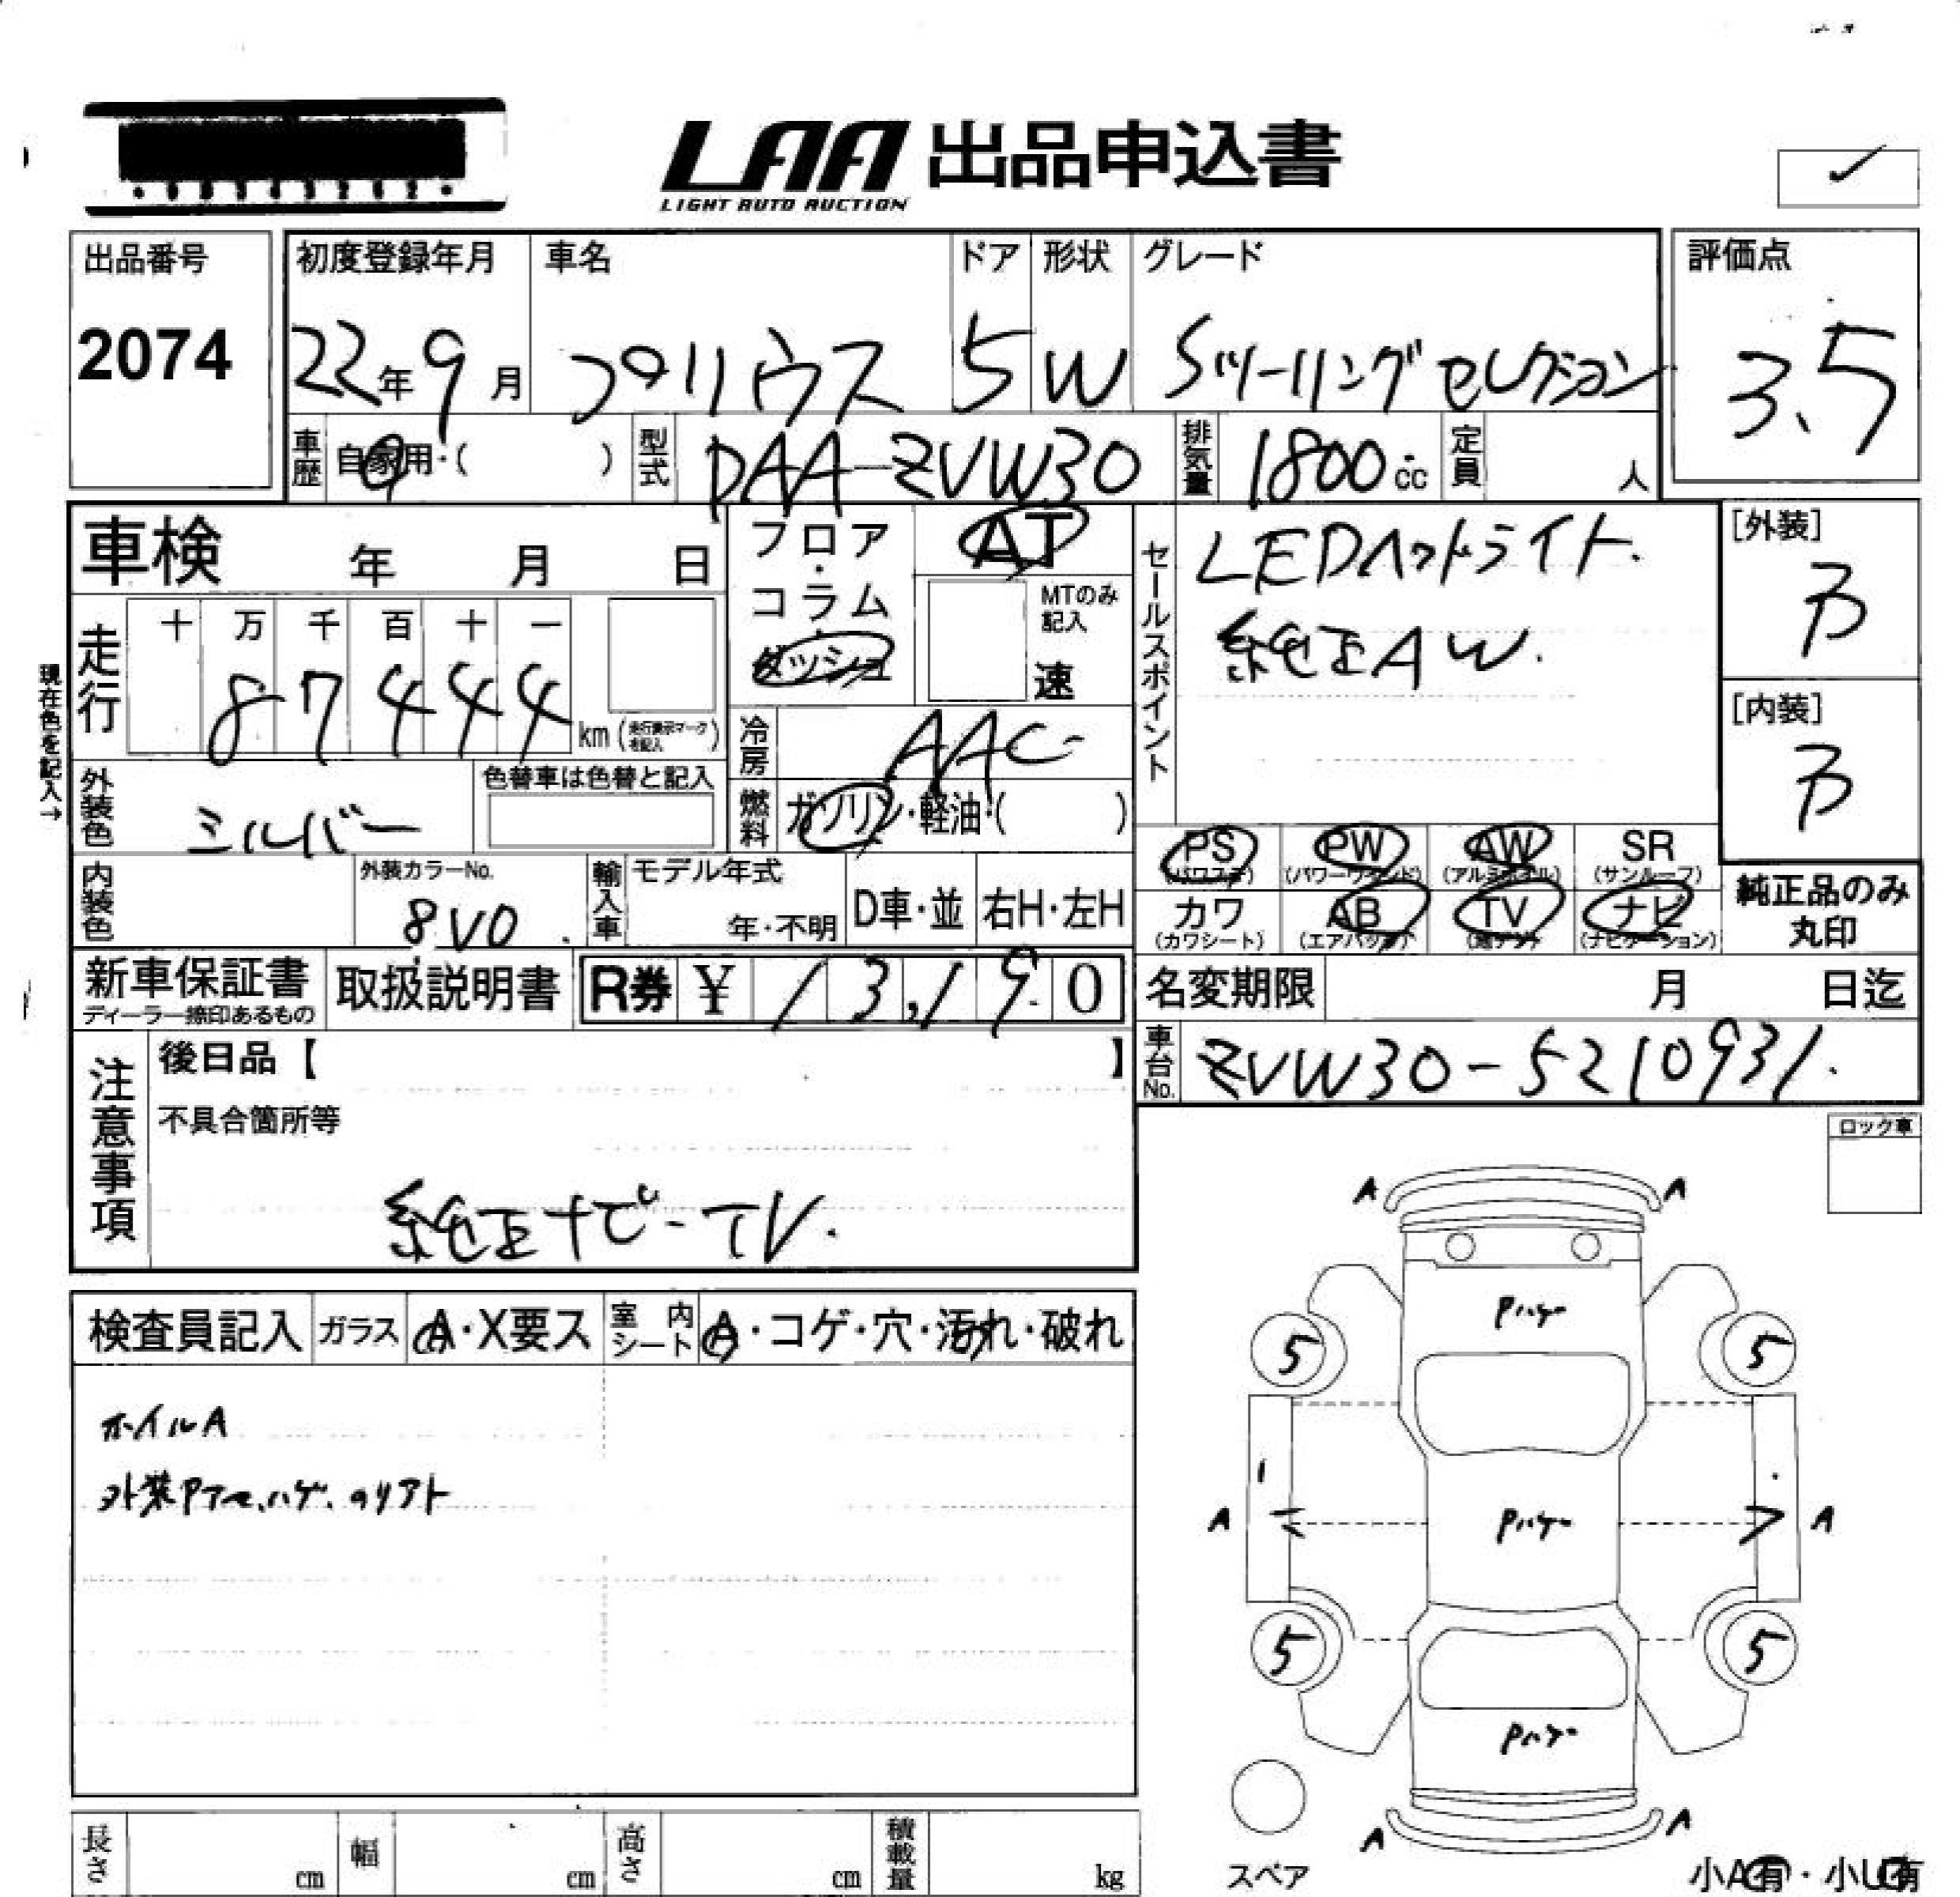 LAA 出品申込書
LIGHT AUTO AUCTION
出品番号
2074
初度登録年月
22年9月
車名
プリウス
ドア
5
形状
W
グレード
Sツーリングセレクション
評価点
3.5
車歴
自家用・( )
型式
DAA-ZVW30
排気量
1800cc
定員
人
車検 年 月 日
走行
十 万 千 百 十 一
87444
km
現在色を記入→
フロア・コラム・ダッシュ
AT
MTのみ記入
速
冷房
AAC
燃料
ガソリン・軽油・( )
セールスポイント
LEDヘッドライト.
純正AW.
[外装]
B
[内装]
B
外装色
シルバー
色替車は色替と記入
内装色
外装カラーNo.
8V0.
輸入車
モデル年式
年・不明
D車・並
右H・左H
PS
(パワステ)
PW
(パワーウインド)
AW
(アルミホイル)
SR
(サンルーフ)
カワ
(カワシート)
AB
(エアバッグ)
TV
ナビ
(ナビゲーション)
純正品のみ
丸印
新車保証書
ディーラー捺印あるもの
取扱説明書
R券 ¥ 13,190
名変期限 月 日迄
車台No.
ZVW30-5210931.
注意事項
後日品【 】
不具合箇所等
純正ナビ-TV.
ロック車
検査員記入
ガラス
A・X要ス
室内シート
A・コゲ・穴・汚れ・破れ
ホイルA
外装Pアセ、ハゲ、ノリアト
A A
Pハゲ
5 5
A Pハゲ A
5 5
Pハゲ
A A
スペア
小A有・小U有
長さ cm
幅 cm
高さ cm
積載量 kg